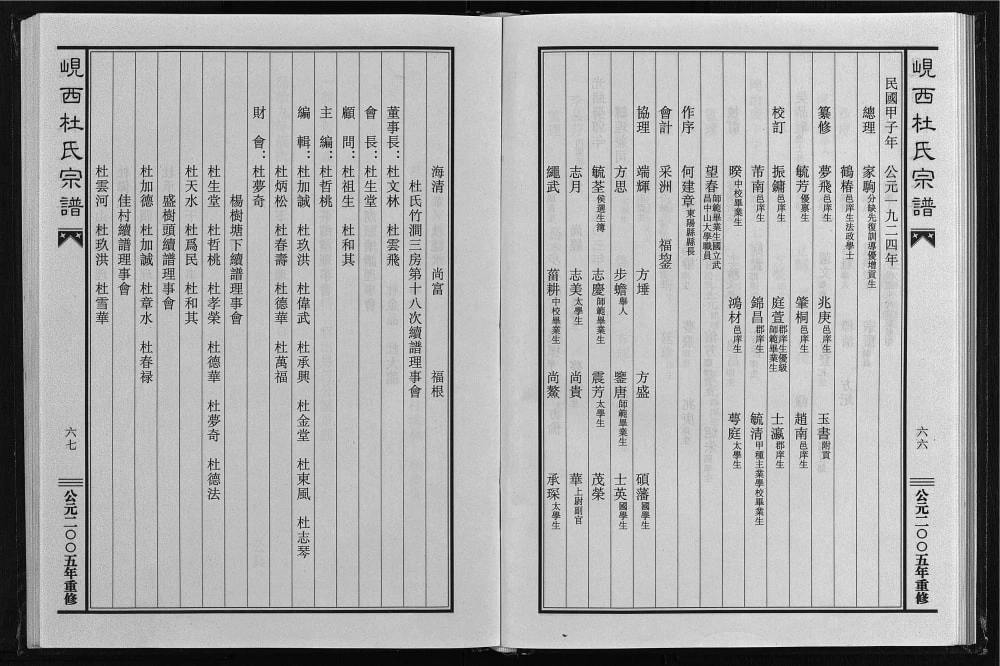 峴西杜氏宗譜
六六
公元二〇〇五年重修
民國甲子年 公元一九二四年
總理 家駒分缺先復訓導優增貢生
鶴椿邑庠生法政學士
纂修 夢飛邑庠生 兆庚邑庠生 玉書附貢
毓芳優禀生 肇桐邑庠生 趙南邑庠生
校訂 振鏞邑庠生 庭萱郡庠生優級師範畢業生 士瀛郡庠生
芾南邑庠生 錦昌郡庠生 毓清甲種主業學校畢業生
暌中校畢業生 鴻材邑庠生 萼庭太學生
望春師範畢業生國立武昌中山大學職員
作序 何建章東陽縣縣長
會計 采洲 福鋆
協理 端輝 方埵 方盛 碩藩國學生
方思 步蟾舉人 鑒唐師範畢業生 士英國學生
毓荃侯選生簿 志慶師範畢業生 震芳太學生 茂榮
志月 志美太學生 尚貴 華上尉副官
繩武 菑耕中校畢業生 尚鰲 承琛太學生
峴西杜氏宗譜
六七
公元二〇〇五年重修
海清 尚富 福根
杜氏竹澗三房第十八次續譜理事會
董事長：杜文林 杜雲飛
會長：杜生堂
顧問：杜祖生 杜和其
主編：杜哲桃
編輯：杜加誠 杜玖洪 杜偉武 杜承興 杜金堂 杜東風 杜志琴
杜炳松 杜春壽 杜德華 杜萬福
財會：杜夢奇
楊樹塘下續譜理事會
杜生堂 杜哲桃 杜孝榮 杜德華 杜夢奇 杜德法
杜天水 杜爲民 杜和其
盛樹頭續譜理事會
杜加德 杜加誠 杜章水 杜春禄
佳村續譜理事會
杜雲河 杜玖洪 杜雪華